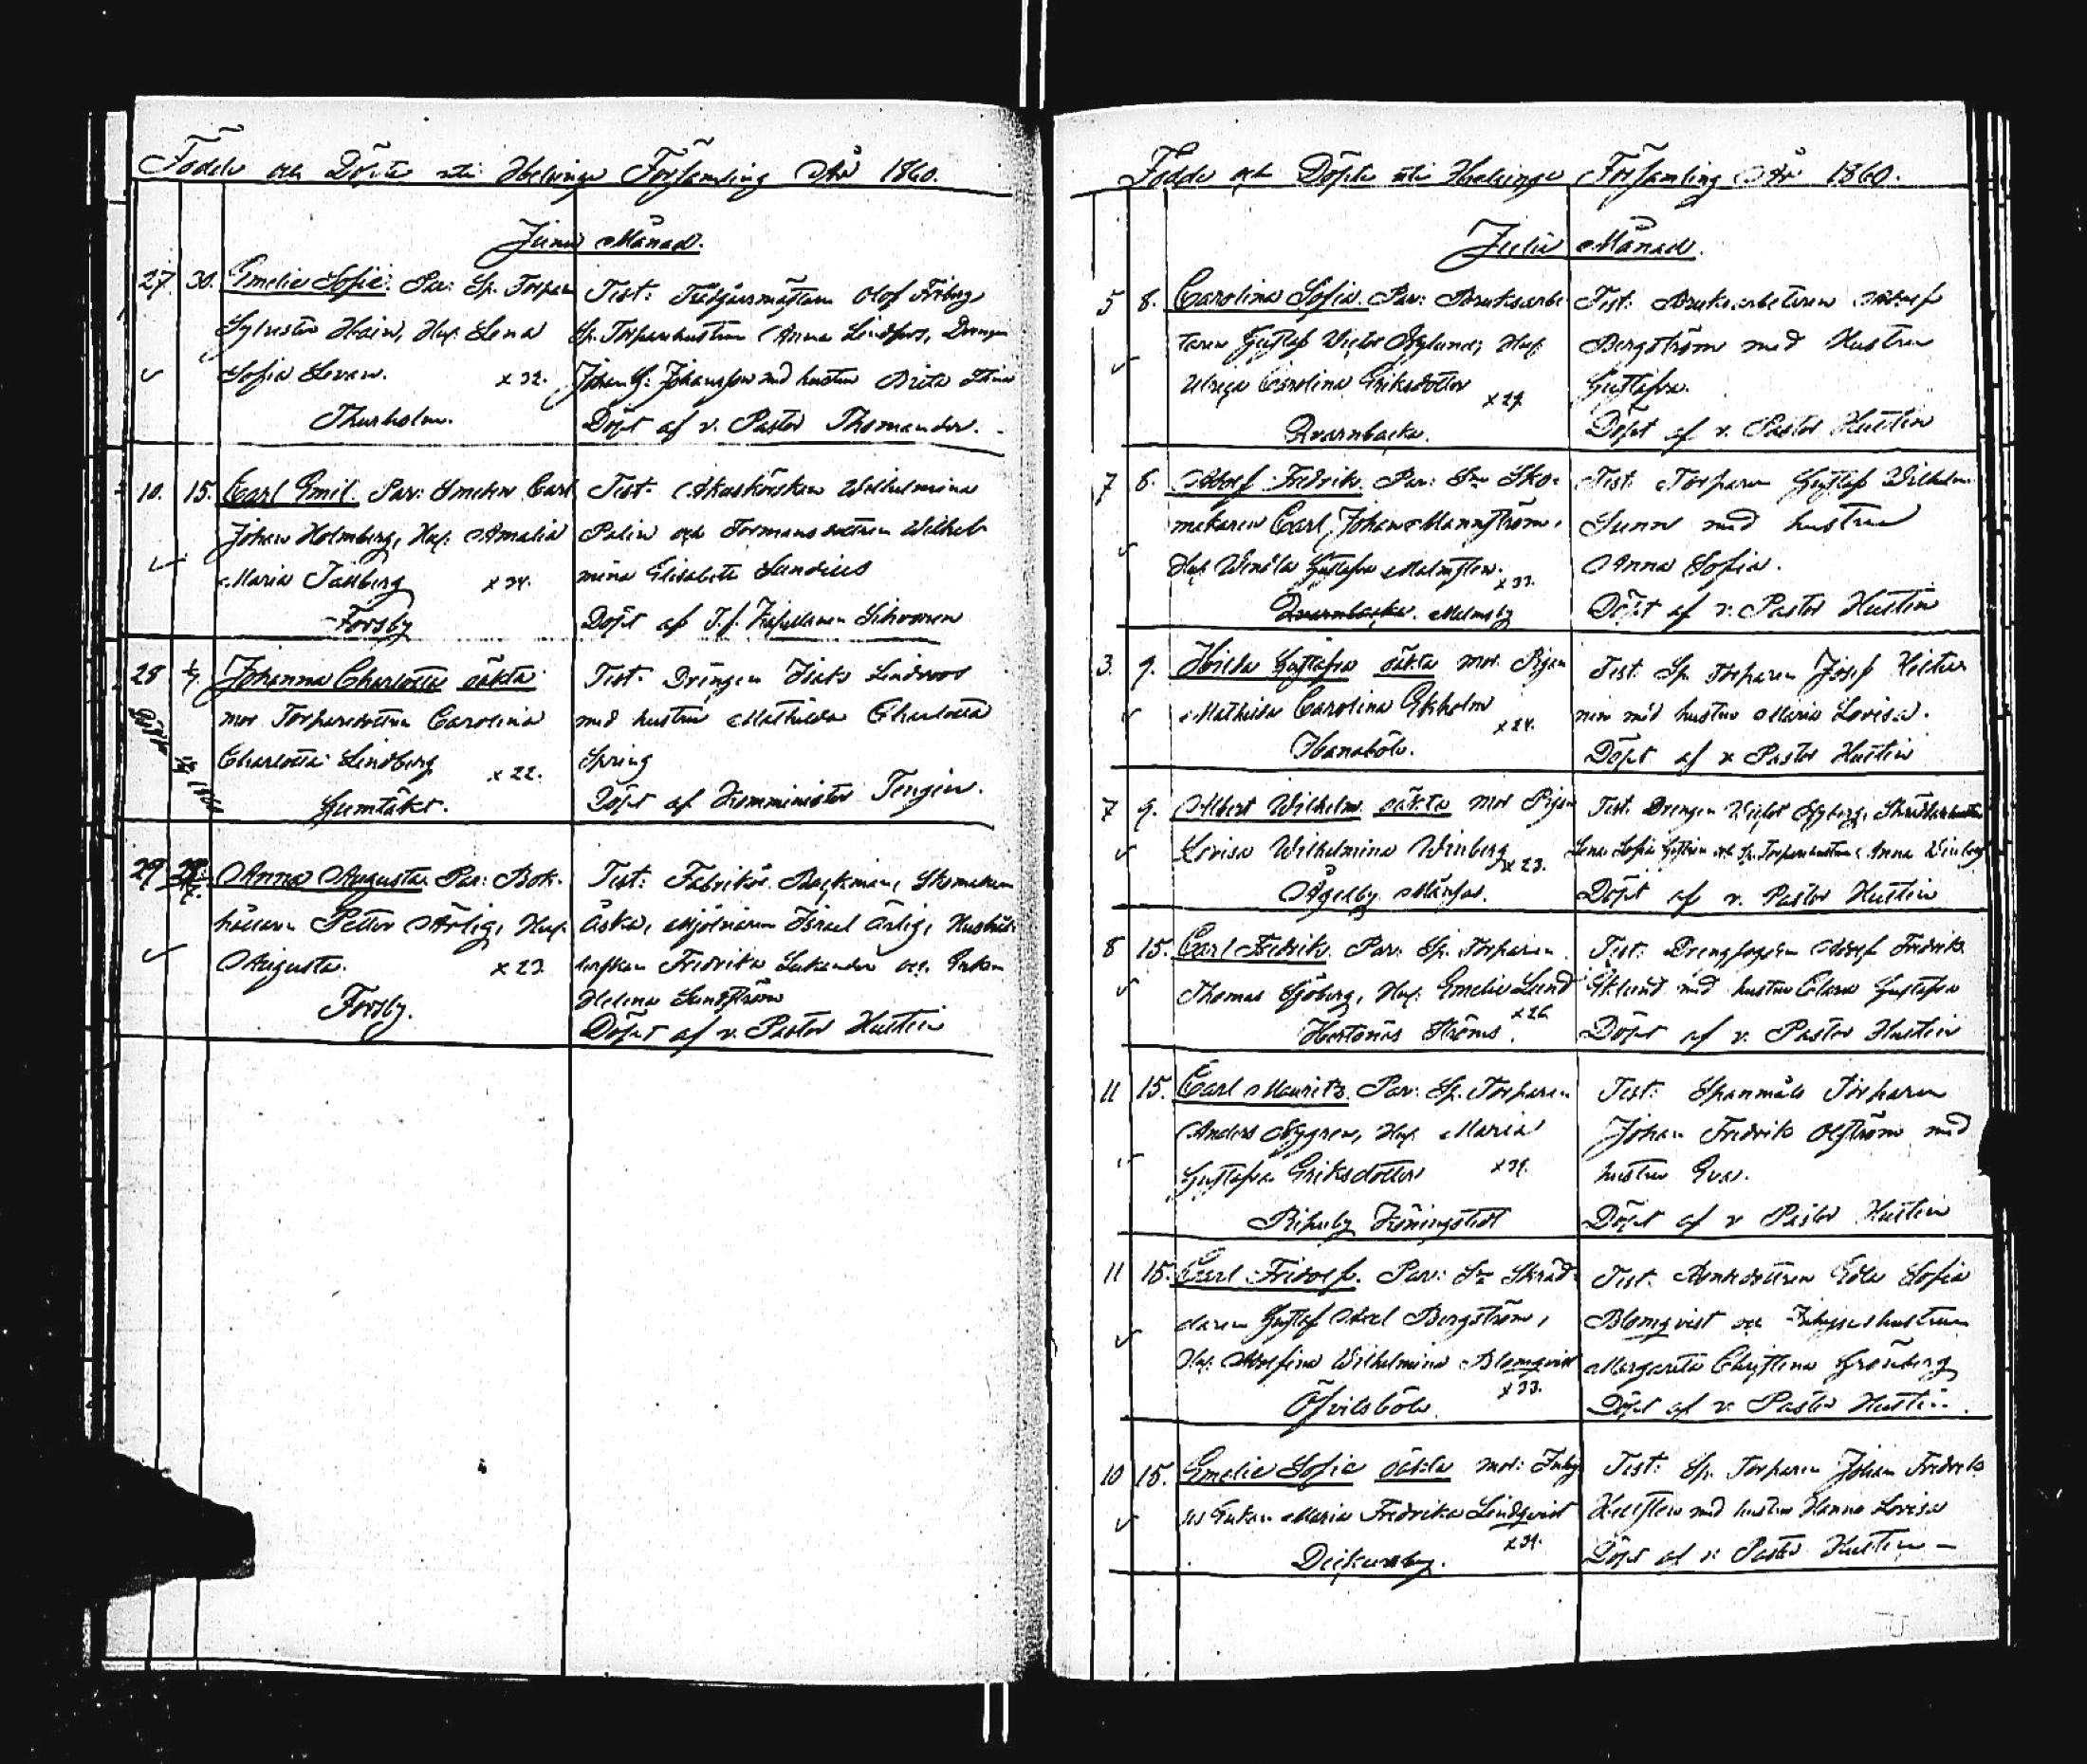 Födde och Döpte uti Helsinge Församling År 1860.
Junii Månad.
27. 30. Emelie Sofie. Par: Sp. Torpar
Sylvester Hoin, Hust. Lena
Sofia Levan. x 32.
Thurholm.
Test: Trädgårsmästaren Olof Friberg,
Sp. Torparehustrun Anna Lindfors, Drengen
Johan G. Johansson med hustru Brita Stina
Döpt af v. Pastor Thomander.
10. 15. Carl Emil. Par: Smeden Carl
Johan Holmberg, Hust. Amalia
Maria Tallberg x 34.
Forsby
Test: Wilhelmina
Palin och Formansdottren Wilhel
mina Elisabeth Sundius
Döpt af T.f. Kapellanen
28 1/7. Johanna Charlotta oäkta
mor. Torparedottren Carolina
Charlotta Lindberg x 22.
Gumtäkt.
Test: Drängen Isaks Lindroos
med hustru Mathilda Charlotta
Spring
Döpt af Komminister Tengén.
29 Anna Augusta. Par: Bok-
hållaren Petter Ärlig, Hust.
Augusta. x 23
Forsby.
Test: Fabrikör Backman, Skomakaren
Israel Ärlig, Hushål-
lerskan Fredrika och Enkan
Helena Sundström
Döpt af v. Pastor Hustin
Födde och Döpte uti Helsinge Församling År 1860.
Julii Månad.
5 8. Carolina Sofia. Par: Bruksarbe
taren Gustaf Victor Höglund, Hust.
Ulrica Carolina Eriksdotter x 29.
Qvarnbacka.
Test: Bruksarbetaren Adolf
Bergström med Hustru
Gustafva.
Döpt af v. Pastor Hustin
7 8. Adolf Fredrik. Par: Sn Sko-
makaren Carl Johan Mannström,
Hust. Wendla Gustafva Malmsten. x 33.
Qvarnbacka. Malmsby
Test: Torparen Gustaf Wilhelm
Sunn med hustru
Anna Sofia.
Döpt af v. Pastor Hustin
3. 9. Hilda Gustafva oäkta mor. Pigan
Mathilda Carolina Ekholm x 24.
Hanaböle.
Test: Sp. Torparen Josef
nen med hustru Maria Lovisa.
Döpt af v. Pastor Hustin
7 9. Albert Wilhelm oäkta mor Pigan
Lovisa Wilhelmina Winberg x 23.
Åggelby Månsas.
Test: Drengen Victor Nyberg,
Lena Sofia och Sp. Torparehustrun Anna Winberg
Döpt af v. Pastor Hustin
8 15. Carl Fredrik. Par: Sp. Torparen
Thomas Sjöberg, Hust. Emelie Lund x 26
Hertonäs Ströms.
Test: Drengfogden Adolf Fredrik
Eklund med hustru Clara Gustafva
Döpt af v. Pastor Hustin
11 15. Carl Mauritz. Par: Sp. Torparen
Anders Nygren, Hust. Maria
Gustafva Eriksdotter x 39.
Ripuby Köningstedt
Test: Spanmåls Torparen
Johan Fredrik Olström med
hustru Eva.
Döpt af v. Pastor Hustin
11 15. Carl Fridolf. Par: Sn Skräd-
daren Gustaf Axel Bergström,
Hust. Adolfina Wilhelmina Blomqvist x 33.
Öfvitsböle
Test: Edla Sofia
Blomqvist och Inhyseshustrun
Margareta Christina Grönberg
Döpt af v. Pastor Hustin.
10 15. Emelie Sofie oäkta mor: Inhy
ses Enkan Maria Fredrika Lindqvist x 39.
Dickursby.
Test: Sp. Torparen Johan Fredrik
Hellsten med hustru Hanna Lovisa
Döpt af v. Pastor Hustin